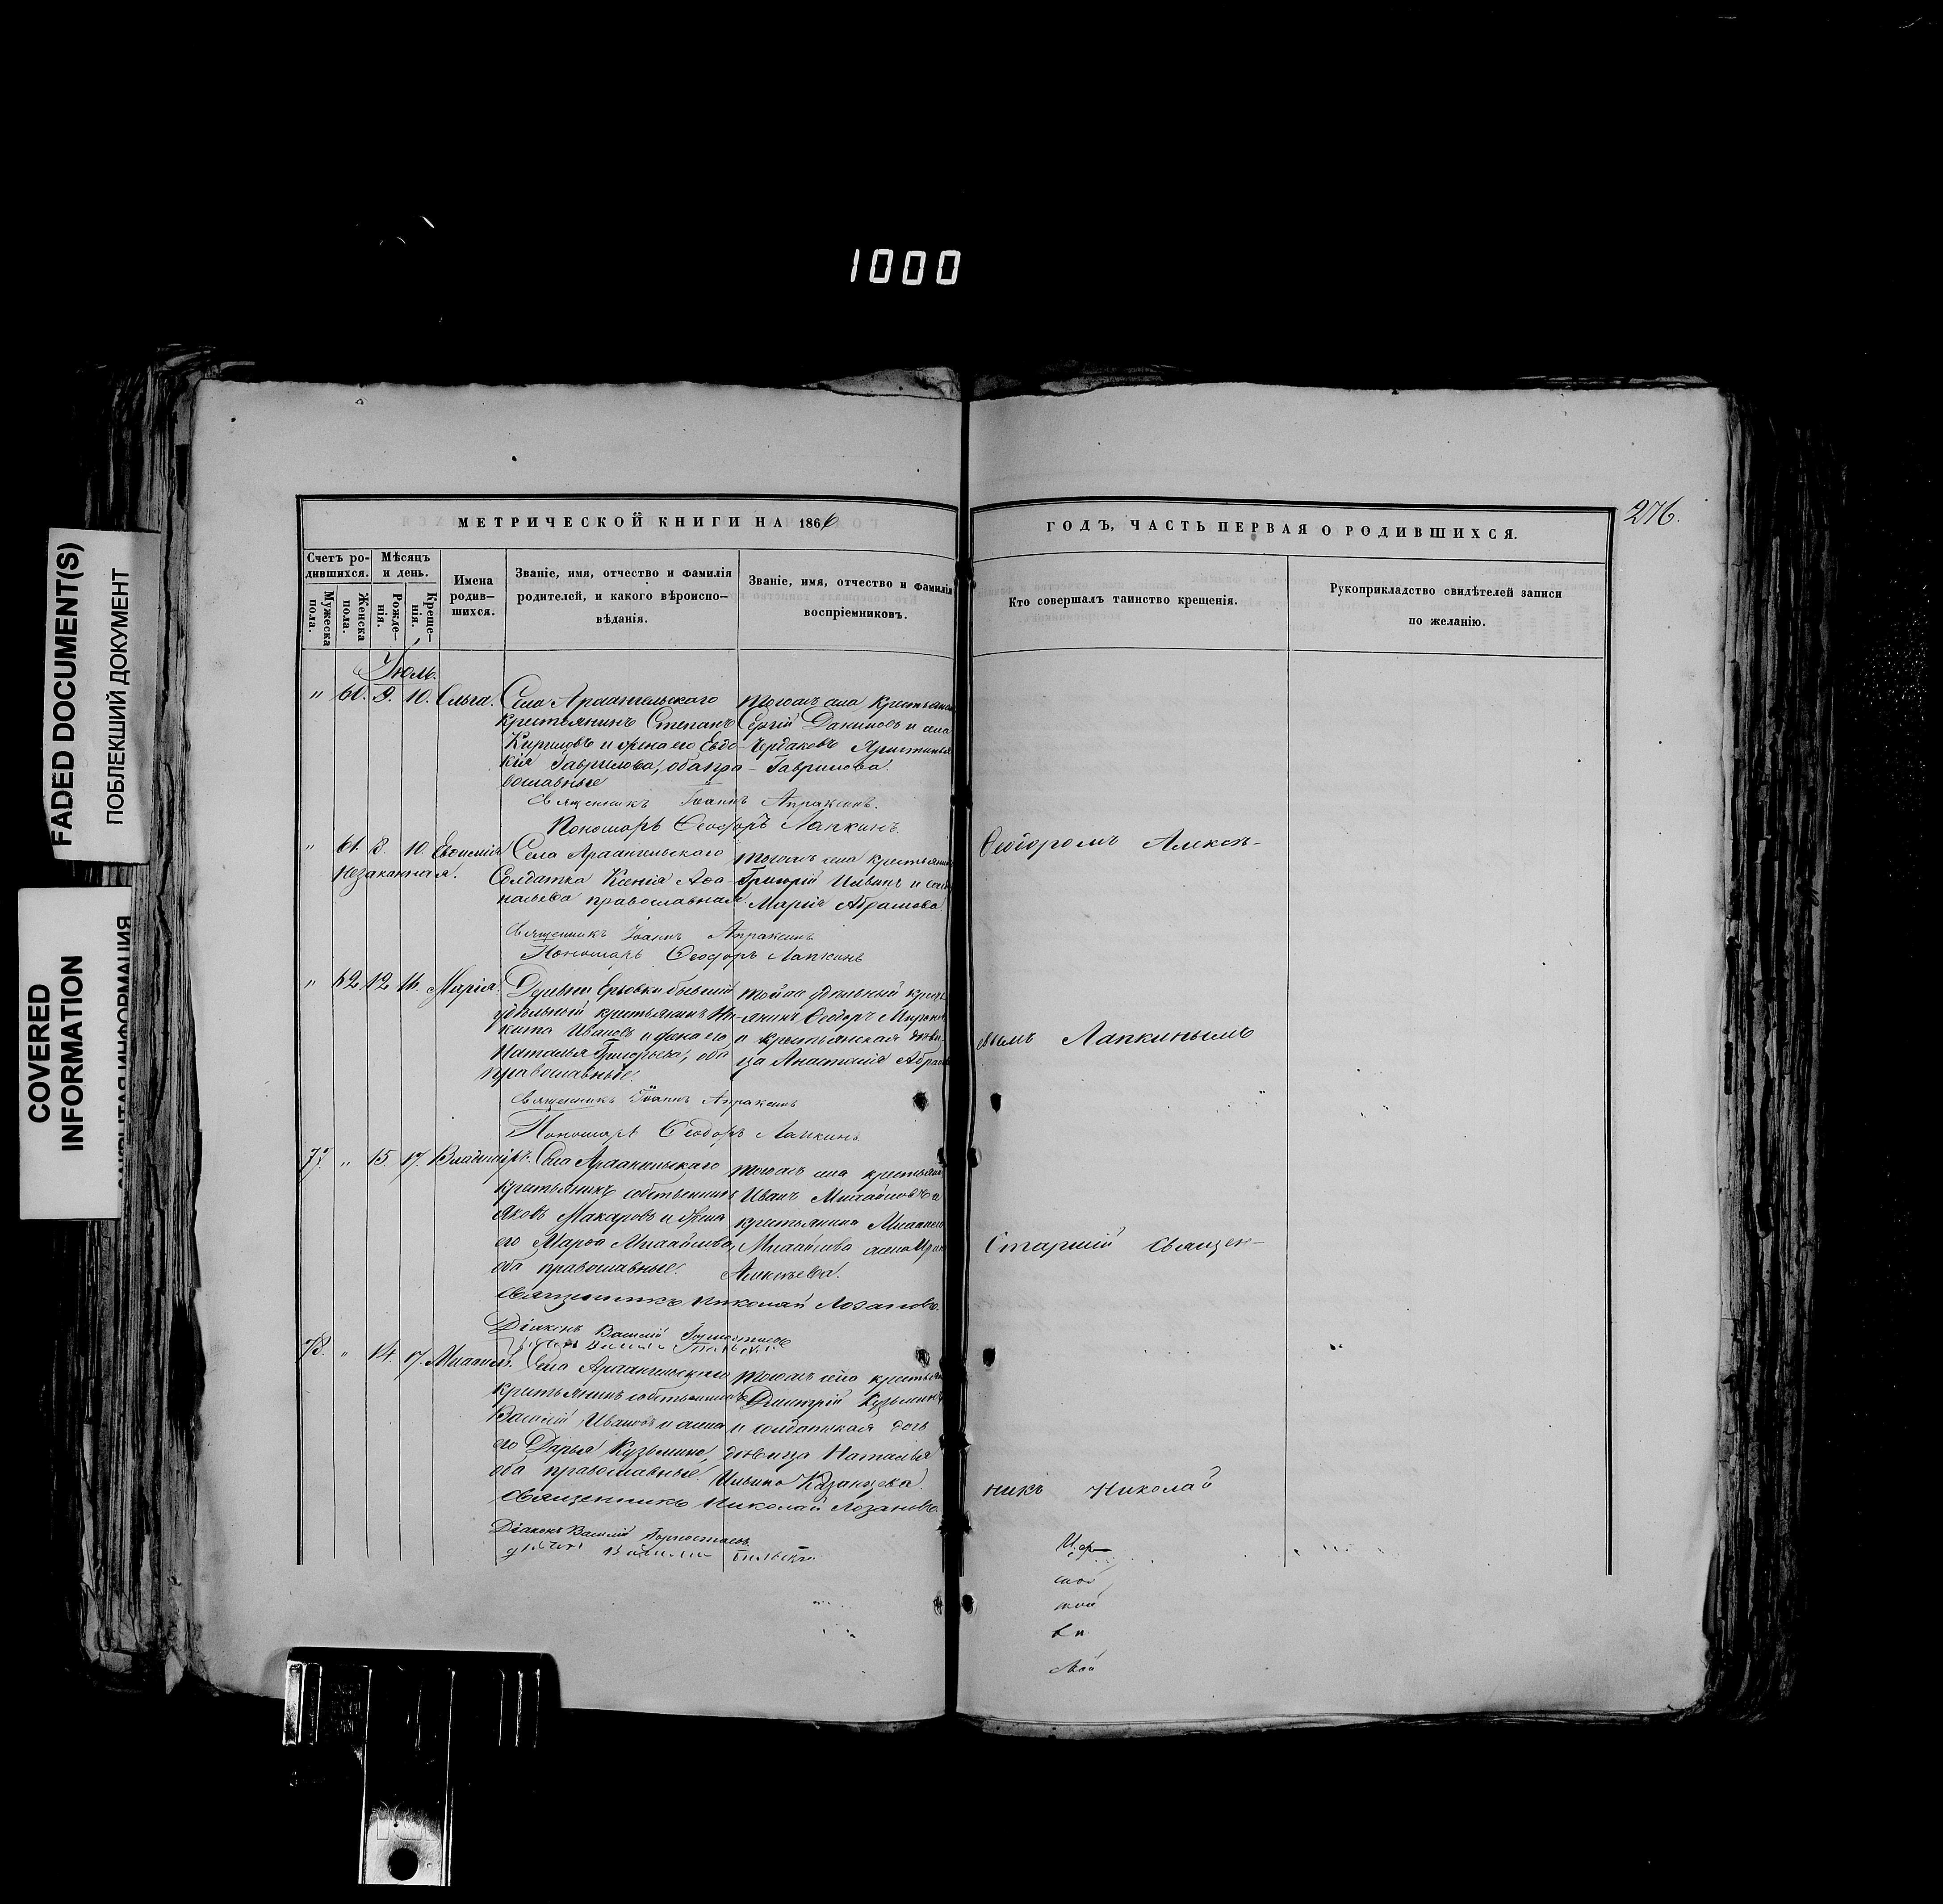 1000
FADED DOCUMENT(S)
ПОБЛЕКШИЙ ДОКУМЕНТ
COVERED
INFORMATION
276.
МЕТРИЧЕСКОЙ КНИГИ НА 1866
ГОДЪ, ЧАСТЬ ПЕРВАЯ О РОДИВШИХСЯ.
Счетъ ро-
дившихся.
Мужеска
пола.
Женска
пола.
Мѣсяцъ
и день.
Рожде-
нія.
Креще-
нія.
Имена
родив-
шихся.
Званіе, имя, отчество и фамилія
родителей, и какого вѣроиспо-
вѣданія.
Званіе, имя, отчество и фамилія
воспріемниковъ.
Кто совершалъ таинство крещенія.
Рукоприкладство свидѣтелей записи
по желанію.
Іюль.
" 60. 9. 10. Ольга.
Села Архангельскаго
крестьянинъ Степанъ
Кириловъ и жена его Евдо-
кія Гаврилова, оба пра-
вославные
Тогожъ села крестьянинъ
Сергій Даниловъ и села
Гаврилова.
Священникъ Іоаннъ Апраксинъ.
Пономарь Ѳеодоръ Лапкинъ.
" 61. 8. 10. Евфимія
Незаконная.
Села Архангельскаго
Солдатка Ксенія Аѳа-
насьева православная
тогожъ села крестьянинъ
Григорій Ильинъ и
Марія Абрамова
Священникъ Іоаннъ Апраксинъ
Пономарь Ѳеодоръ Лапкинъ
" 62. 12. 16. Марія.
Деревни Ерзовки бывшій
удѣльный крестьянинъ Ни-
кита Ивановъ и жена его
Наталья Григорьева, оба
православные.
янинъ Ѳеодоръ
и крестьянская дѣви-
ца Анастасія
Священникъ Іоаннъ Апраксинъ
Пономарь Ѳеодоръ Лапкинъ
77. " 15 17. Владиміръ.
Села Архангельскаго
крестьянинъ собственникъ
Яковъ Макаровъ и жена
его Марѳа Михайлова,
оба православные.
тогожъ села крестьянинъ
Иванъ Михайловъ и
крестьянина Михаила
Михайлова жена
Алексѣева.
Священникъ Николай Лозановъ.
Діаконъ Василій Горностаевъ
78. " 14. 17. Михаилъ.
Села Архангельскаго
крестьянинъ собственникъ
Василій Ивановъ и жена
его Дарья Кузьмина,
оба православные.
тогожъ села крестьянинъ
Дмитрій Кузьминъ
и солдатская дочь
дѣвица Наталья
Ильина Казанцева.
Священникъ Николай Лозановъ.
Діаконъ Василій Горностаевъ
Ѳеодоромъ Алексѣ-
евымъ Лапкинымъ
Старшій священ-
никъ Николай